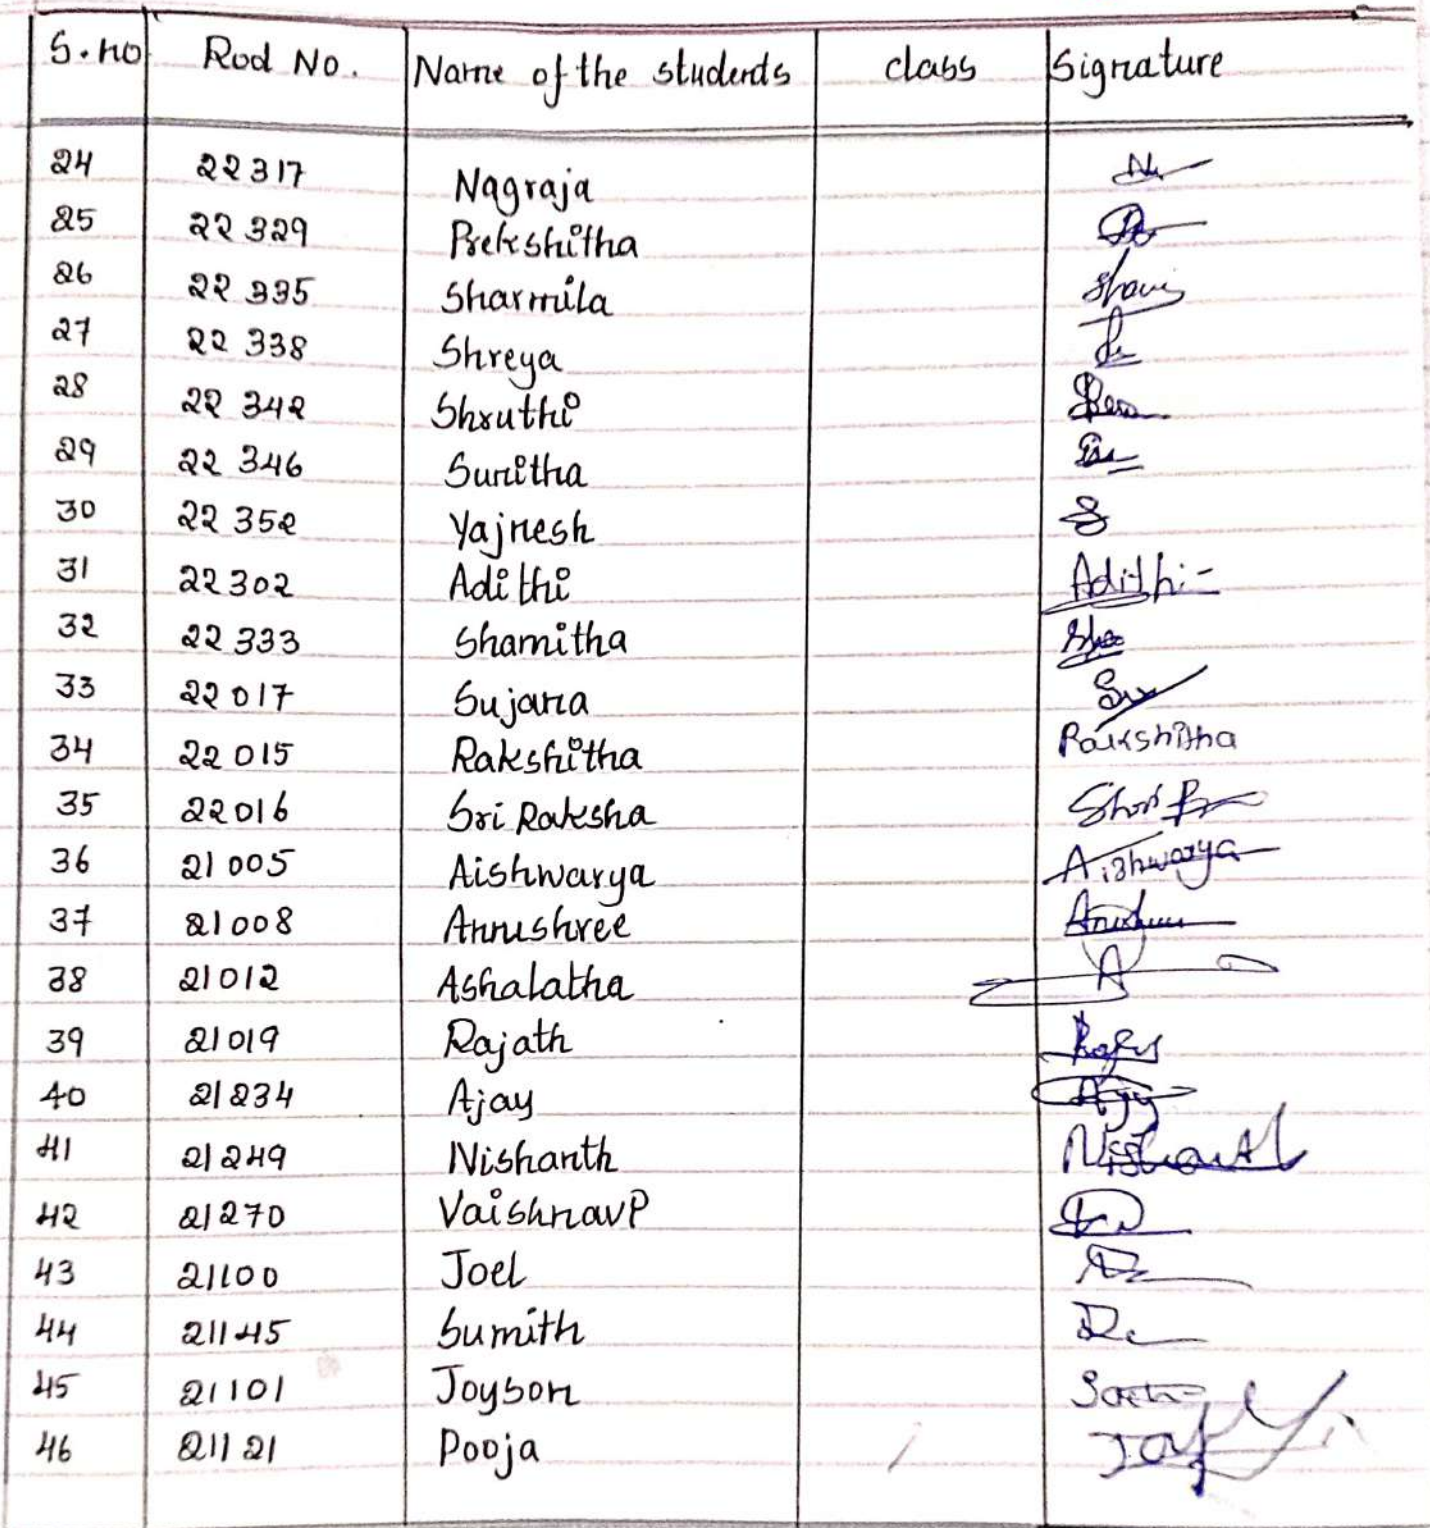 S.no Rod No. Name of the students class Signature
24 22317 Nagraja
25 22329 Prekshitha
26 22335 Sharmila
27 22338 Shreya
28 22342 Shruthi
29 22346 Sunitha
30 22352 Yajnesh
31 22302 Adithi Adithi
32 22333 Shamitha
33 22017 Sujana
34 22015 Rakshitha Rakshitha
35 22016 Sri Raksha
36 21005 Aishwarya Aishwarya
37 21008 Annushree
38 21012 Ashalatha A
39 21019 Rajath
40 21234 Ajay
41 21249 Nishanth Nishanth
42 21270 Vaishnav P
43 21100 Joel
44 21145 Sumith
45 21101 Joyson
46 21121 Pooja